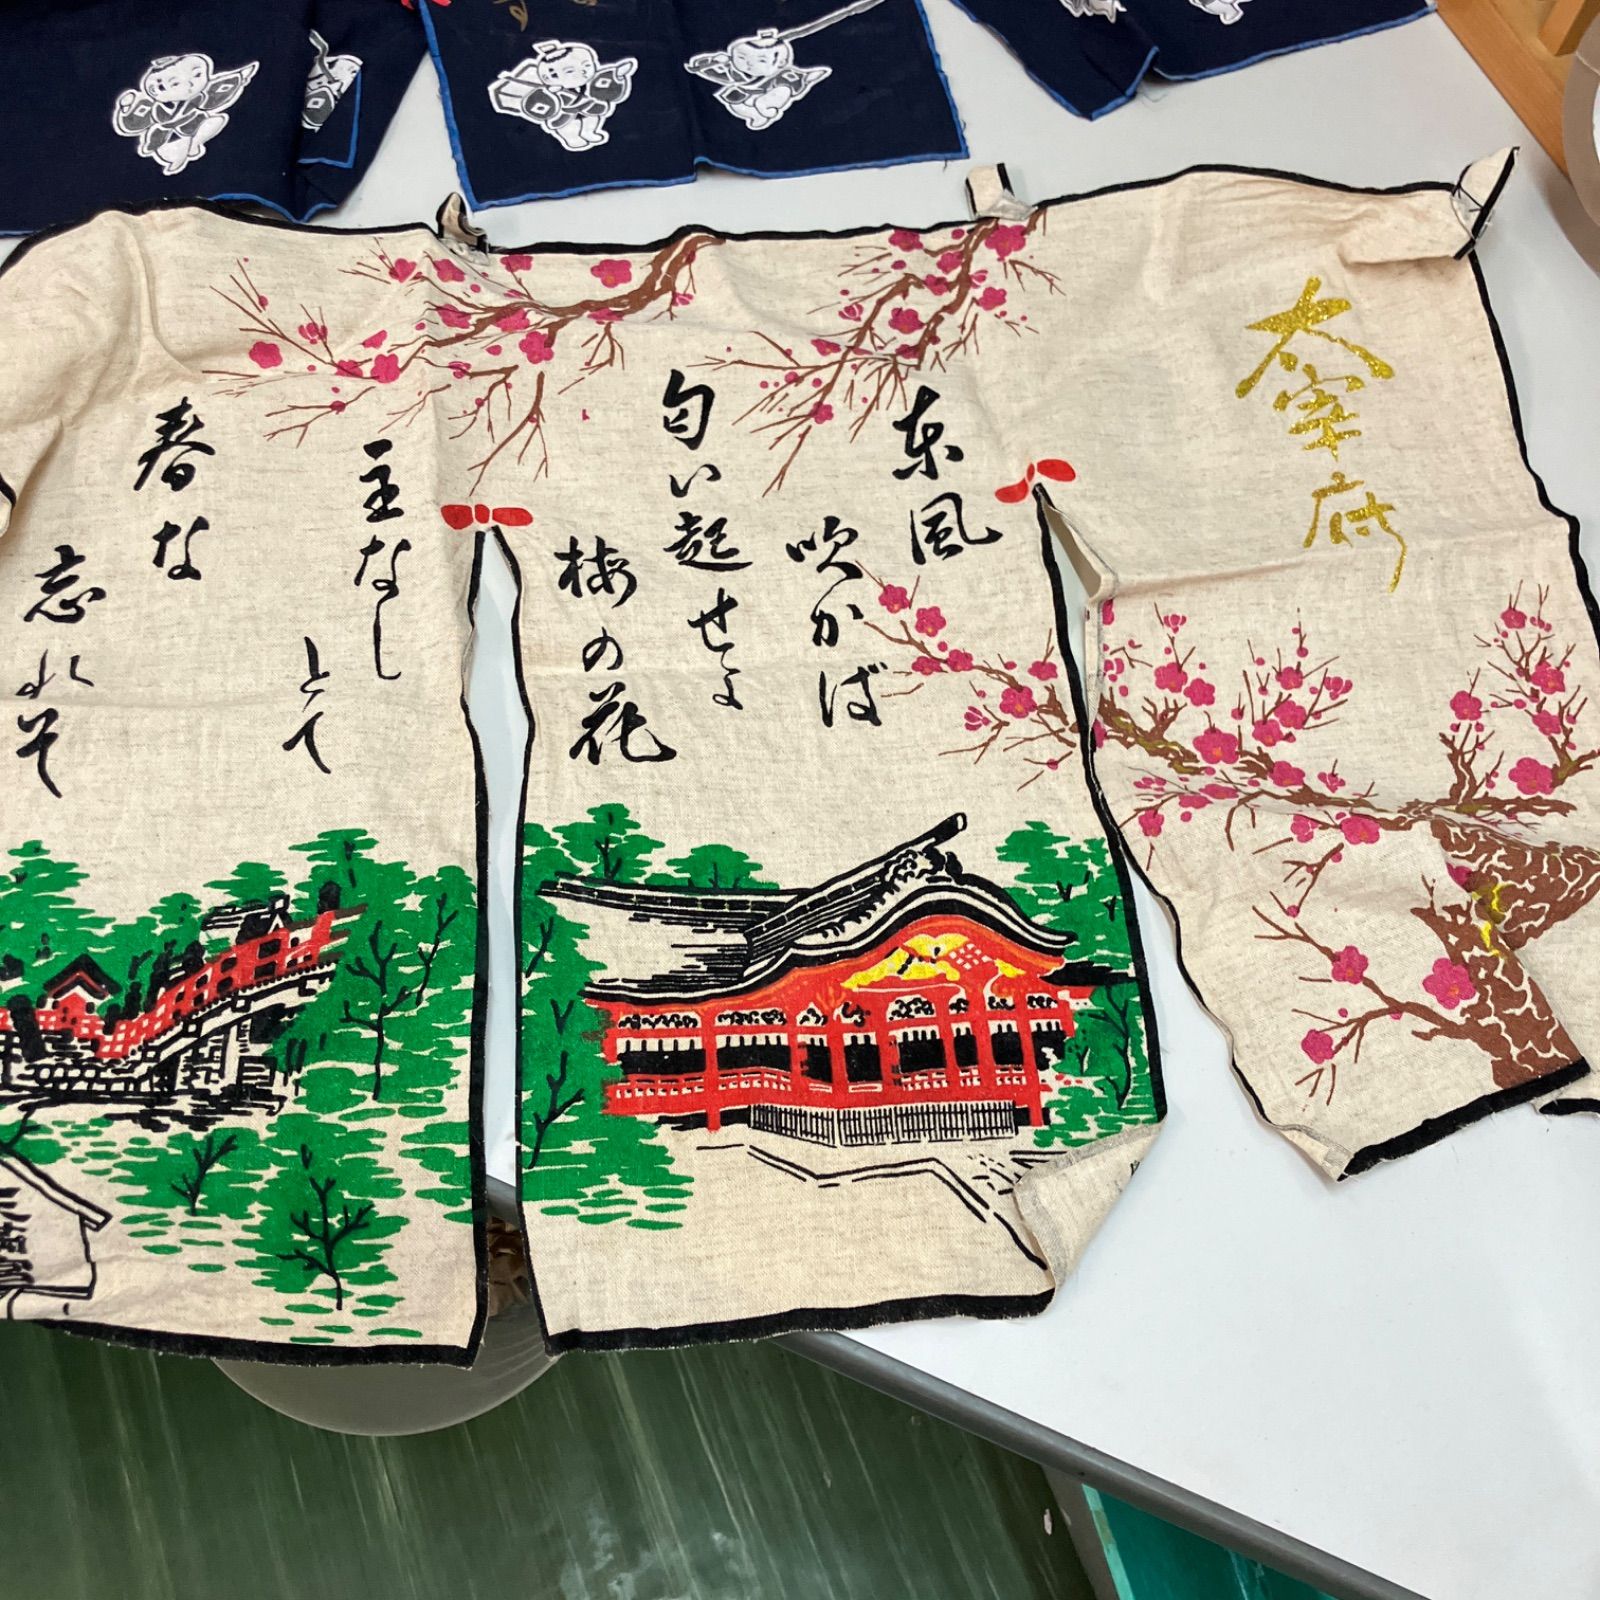 太宰府
東風
吹かば
匂い起せよ
梅の花
主なし
とて
春な
忘れそ